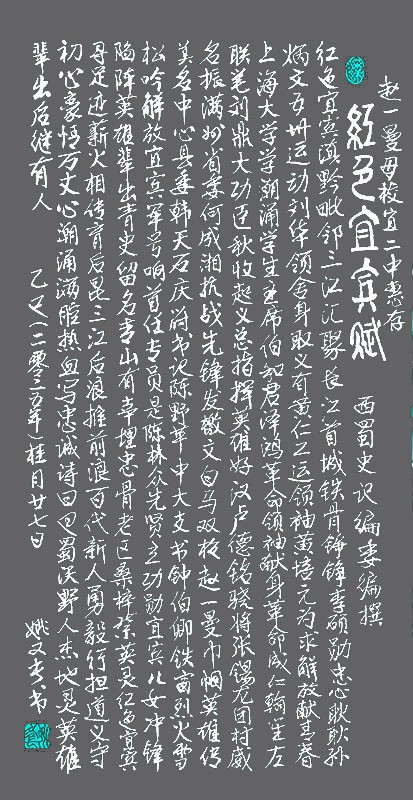 赵一曼母校宜二中惠存
紅色宜宾赋
西蜀史识编委编撰
红色宜宾滇黔毗邻三江汇聚长江首城铁骨铮锋李硕勋忠心耿耿孙
炳文五卅运动刘华领舍身取义有黄仁工运领袖黄悟元为求解放献青春
上海大学学潮涌学生主席伯知君泽鸿革命领袖献身革命成仁翰笙左
联刘鼎大功臣秋收起义总指挥英雄好汉卢德铭骁将张锡龙团村威
名振满州省委何成湘抗战先锋发檄文白马双枪赵一曼巾帼英雄传
美名中心县委韩天石庆府书记陈野苹中大支书钟伯卿铁窗烈火雪
松吟解放宜宾军号响首任专员是陈林众先贤立功勋宜宾儿女冲锋
陷阵英雄辈出青史留名青山有幸埋忠骨老区桑梓祭英灵红色宜宾
寻足迹薪火相传育后昆三江后浪推前浪百代新人勇毅行担道义守
初心豪情万丈心潮涌满腔热血写忠诚诗曰蜀汉野人杰地灵英雄
辈出后继有人 乙巳(二零二五年)桂月廿七日
姚文书